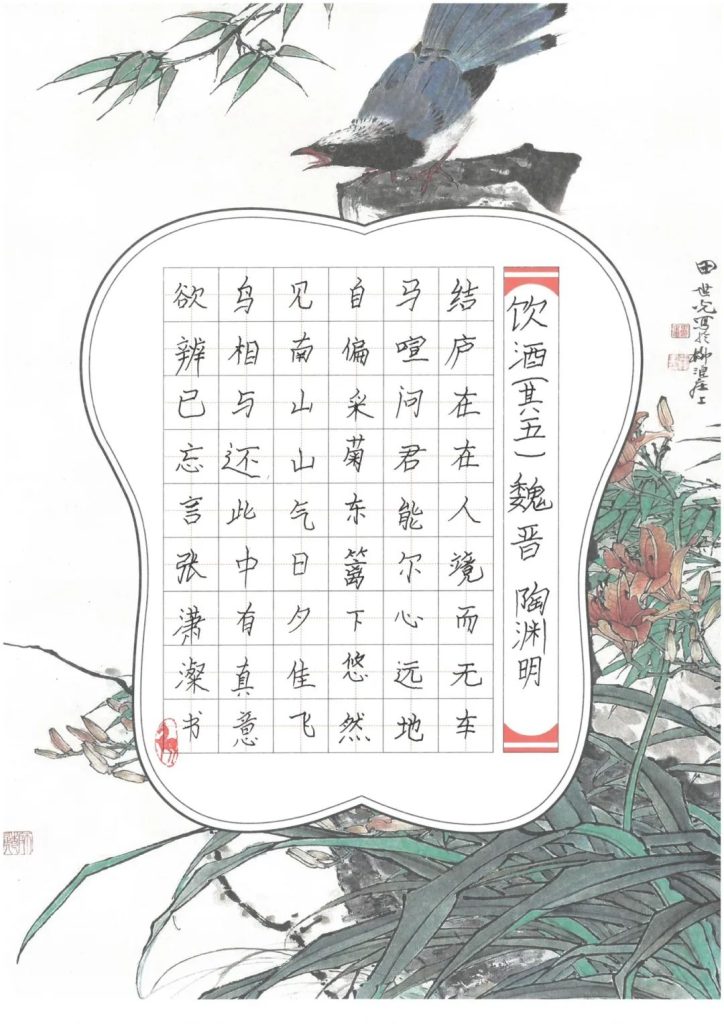 饮酒(其五) 魏晋 陶渊明
结庐在在人境而无车
马喧问君能尔心远地
自偏采菊东篱下悠然
见南山山气日夕佳飞
鸟相与还此中有真意
欲辨已忘言张潇澯书
田世光写于柳浪庄上